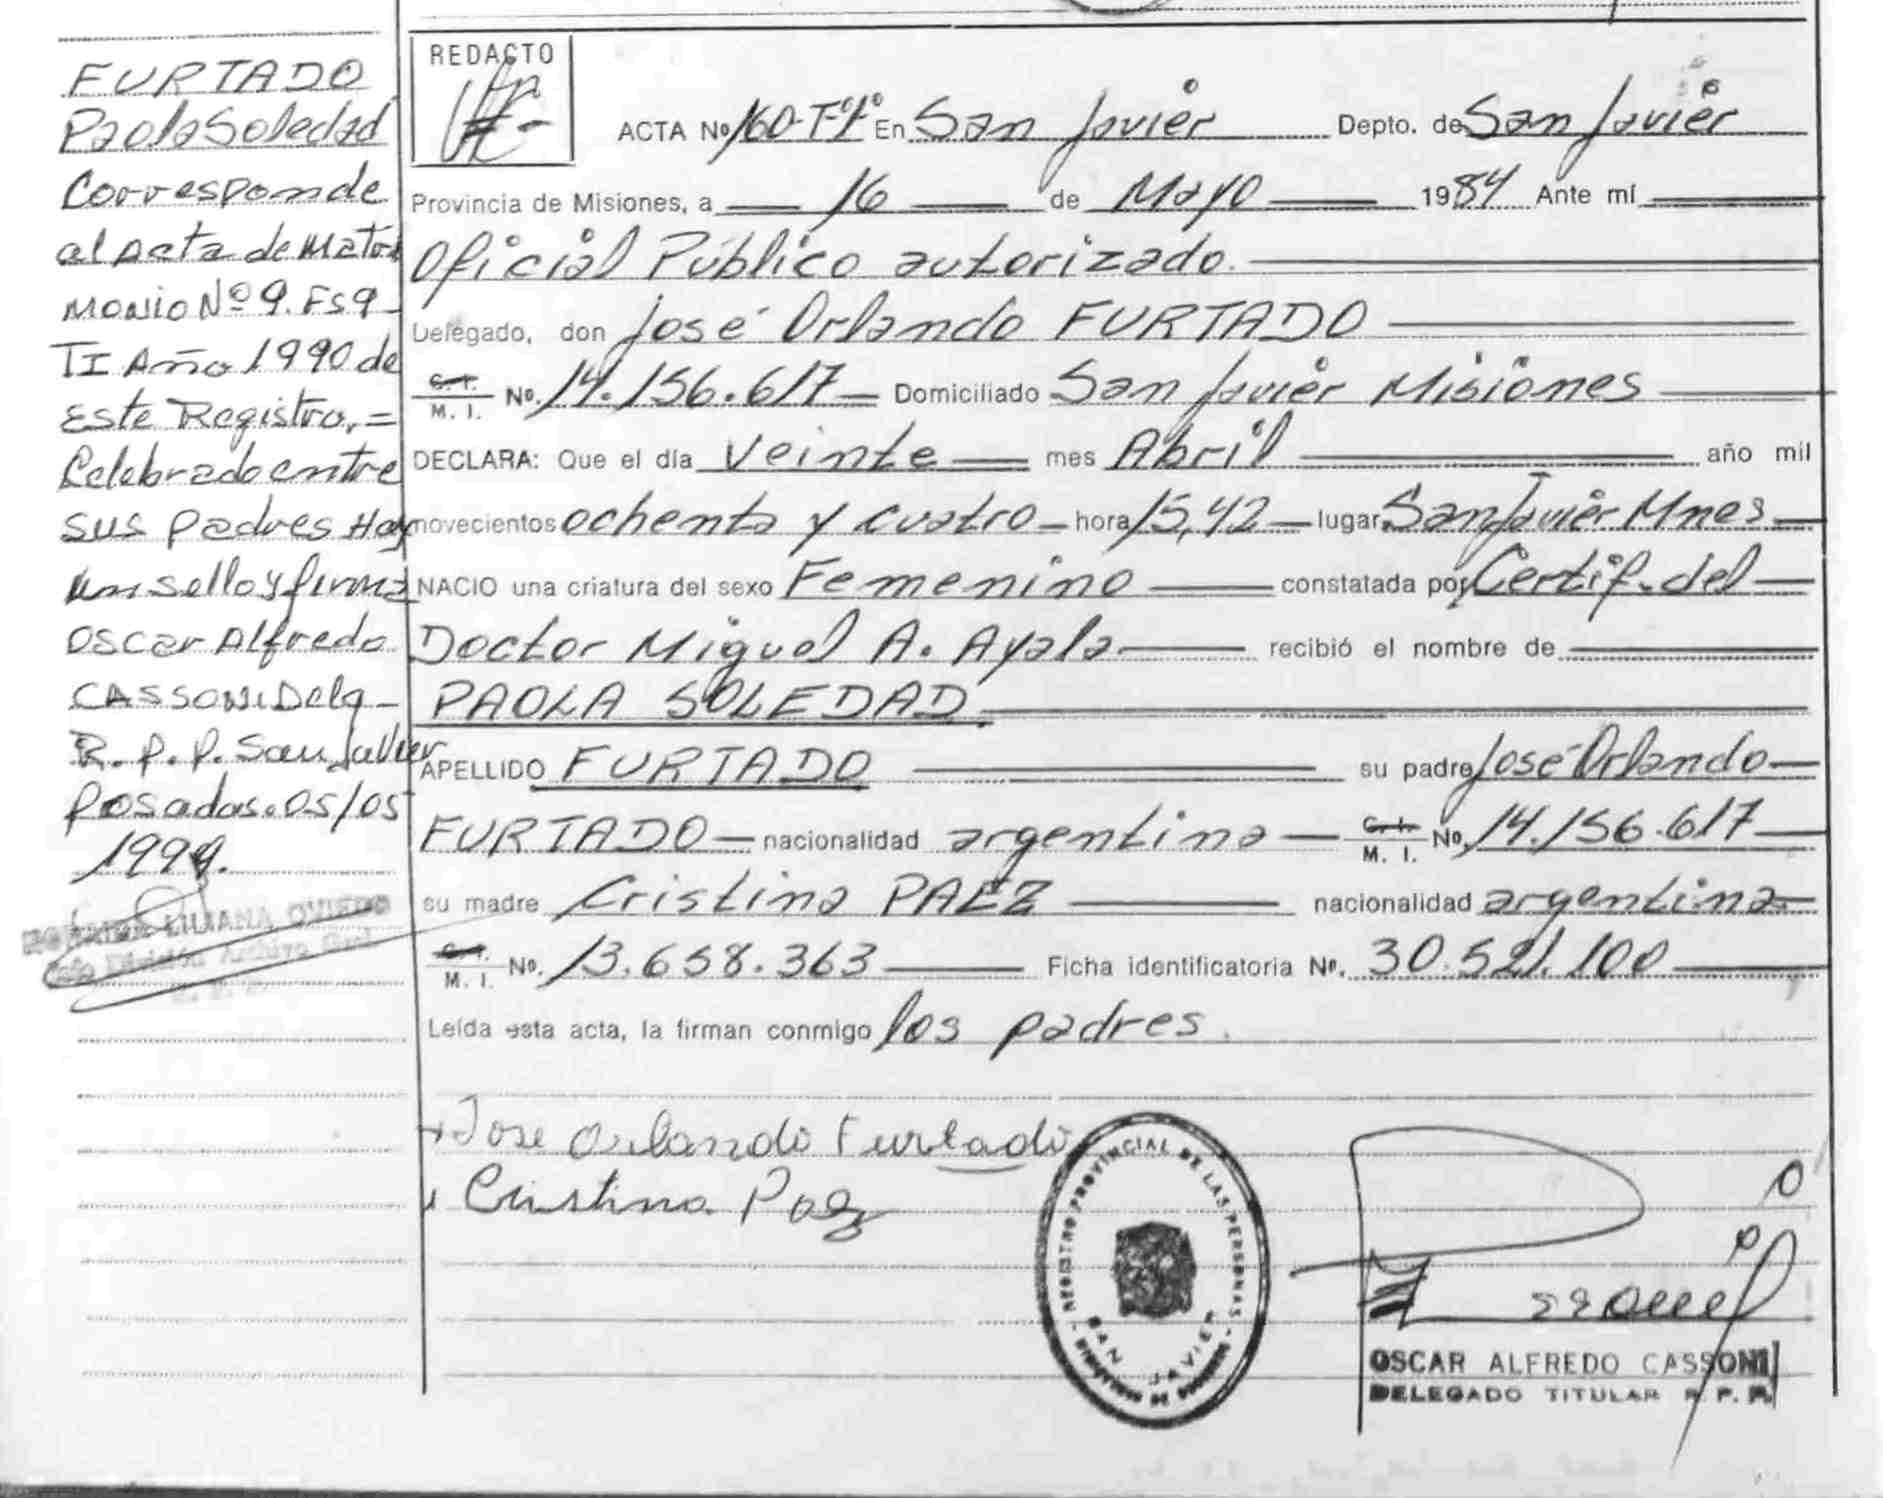 FURTADO
Paola Soledad
Corresponde
al Acta de Matri
monio Nº 9. Fs 9
TI Año 1990 de
Este Registro, =
Celebrado entre
sus padres Hay
un sello y firma
Oscar Alfredo
CASSONI Delg
R. P. P. San Javier
Posadas. 05/05
1999.
LILIANA OVIEDO
Jefe División Archivo Gral
R. P. P.
REDACTO
ACTA Nº 160-Tº1º En San Javier Depto. de San Javier
Provincia de Misiones, a 16 de Mayo 1984 Ante mí
Oficial Público autorizado.
Delegado, don José Orlando FURTADO
C. I. M. I. Nº. 14.156.617 Domiciliado San Javier Misiones
DECLARA: Que el día Veinte mes Abril año mil
novecientos ochenta y cuatro hora 15,42 lugar San Javier Mnes
NACIO una criatura del sexo Femenino constatada por Certif. del
Doctor Miguel A. Ayala recibió el nombre de
PAOLA SOLEDAD
APELLIDO FURTADO su padre José Orlando
FURTADO nacionalidad argentina C. I. M. I. Nº. 14.156.617
su madre Cristina PAEZ nacionalidad argentina
C. I. M. I. Nº. 13.658.363 Ficha identificatoria Nº. 30.521.100
Leída esta acta, la firman conmigo los padres.
Jose Orlando Furtado
Cristina Paez
REGISTRO PROVINCIAL DE LAS PERSONAS
SAN JAVIER
OSCAR ALFREDO CASSONI
DELEGADO TITULAR R. P. P.